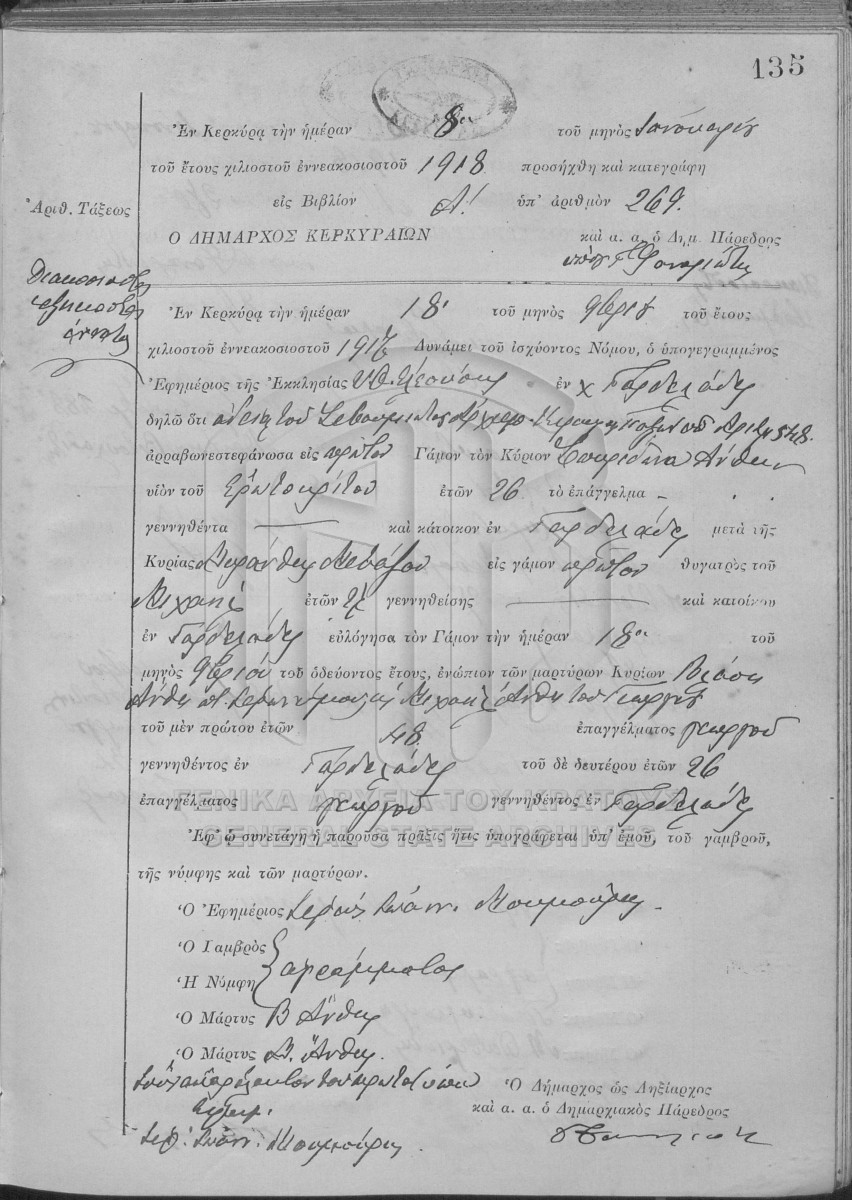 135
Ἐν Κερκύρᾳ τὴν ἡμέραν 8η τοῦ μηνὸς Ἰανουαρίου
τοῦ ἔτους χιλιοστοῦ ἐννεακοσιοστοῦ 1918 προσήχθη καὶ κατεγράφη
εἰς Βιβλίον Α! ὑπ' ἀριθμὸν 269.
Ἀριθ. Τάξεως
Ὁ ΔΗΜΑΡΧΟΣ ΚΕΡΚΥΡΑΙΩΝ καὶ α. α. ὁ Δημ. Πάρεδρος
διακοσιοστὸς
ἑξηκοστὸς
ἔνατος
Ἐν Κερκύρᾳ τὴν ἡμέραν 18 τοῦ μηνὸς 9βρίου τοῦ ἔτους
χιλιοστοῦ ἐννεακοσιοστοῦ 1917 Δυνάμει τοῦ ἰσχύοντος Νόμου, ὁ ὑπογεγραμμένος
Ἐφημέριος τῆς Ἐκκλησίας Υ.Θ. Ἐλεούσης ἐν χ Γαρδελάδες
δηλῶ ὅτι ἀδείᾳ τοῦ Σεβασμιωτάτου 548.
ἀρραβωνεστεφάνωσα εἰς πρῶτον Γάμον τὸν Κύριον Σπυρίδωνα Ἄνθην
υἱὸν τοῦ Ἐρωτοκρίτου ἐτῶν 26 τὸ ἐπάγγελμα -
γεννηθέντα — καὶ κάτοικον ἐν Γαρδελάδες μετὰ τῆς
Κυρίας εἰς γάμον πρῶτον θυγατρὸς τοῦ
Μιχαὴλ ἐτῶν γεννηθείσης — καὶ κατοίκου
ἐν Γαρδελάδες εὐλόγησα τὸν Γάμον τὴν ἡμέραν 18η τοῦ
μηνὸς 9βρίου τοῦ ὁδεύοντος ἔτους, ἐνώπιον τῶν μαρτύρων Κυρίων Βλάση
Ἄνθη Μιχαὴλ Ἄνθη τοῦ Γεωργίου
τοῦ μὲν πρώτου ἐτῶν 48 ἐπαγγέλματος γεωργοῦ
γεννηθέντος ἐν Γαρδελάδες τοῦ δὲ δευτέρου ἐτῶν 26
ἐπαγγέλματος γεωργοῦ γεννηθέντος ἐν Γαρδελάδες
ΓΕΝΙΚΑ ΑΡΧΕΙΑ ΤΟΥ ΚΡΑΤΟΥΣ
GENERAL STATE ARCHIVES
Ἐφ' ᾧ συνετάγη ἡ παροῦσα πρᾶξις ἥτις ὑπογράφεται ὑπ' ἐμοῦ, τοῦ γαμβροῦ,
τῆς νύμφης καὶ τῶν μαρτύρων.
Ὁ Ἐφημέριος Ἱερεὺς Ἰωάνν. Μουμούρης
Ὁ Γαμβρὸς
ἀγράμματος
Ἡ Νύμφη
Ὁ Μάρτυς Β Ἄνθης
Ὁ Μάρτυς Μ. Ἄνθης.
Ὁ Δήμαρχος ὡς Ληξίαρχος
καὶ α. α. ὁ Δημαρχιακὸς Πάρεδρος
Ἱερ. Ἰωάν. Μουμούρης